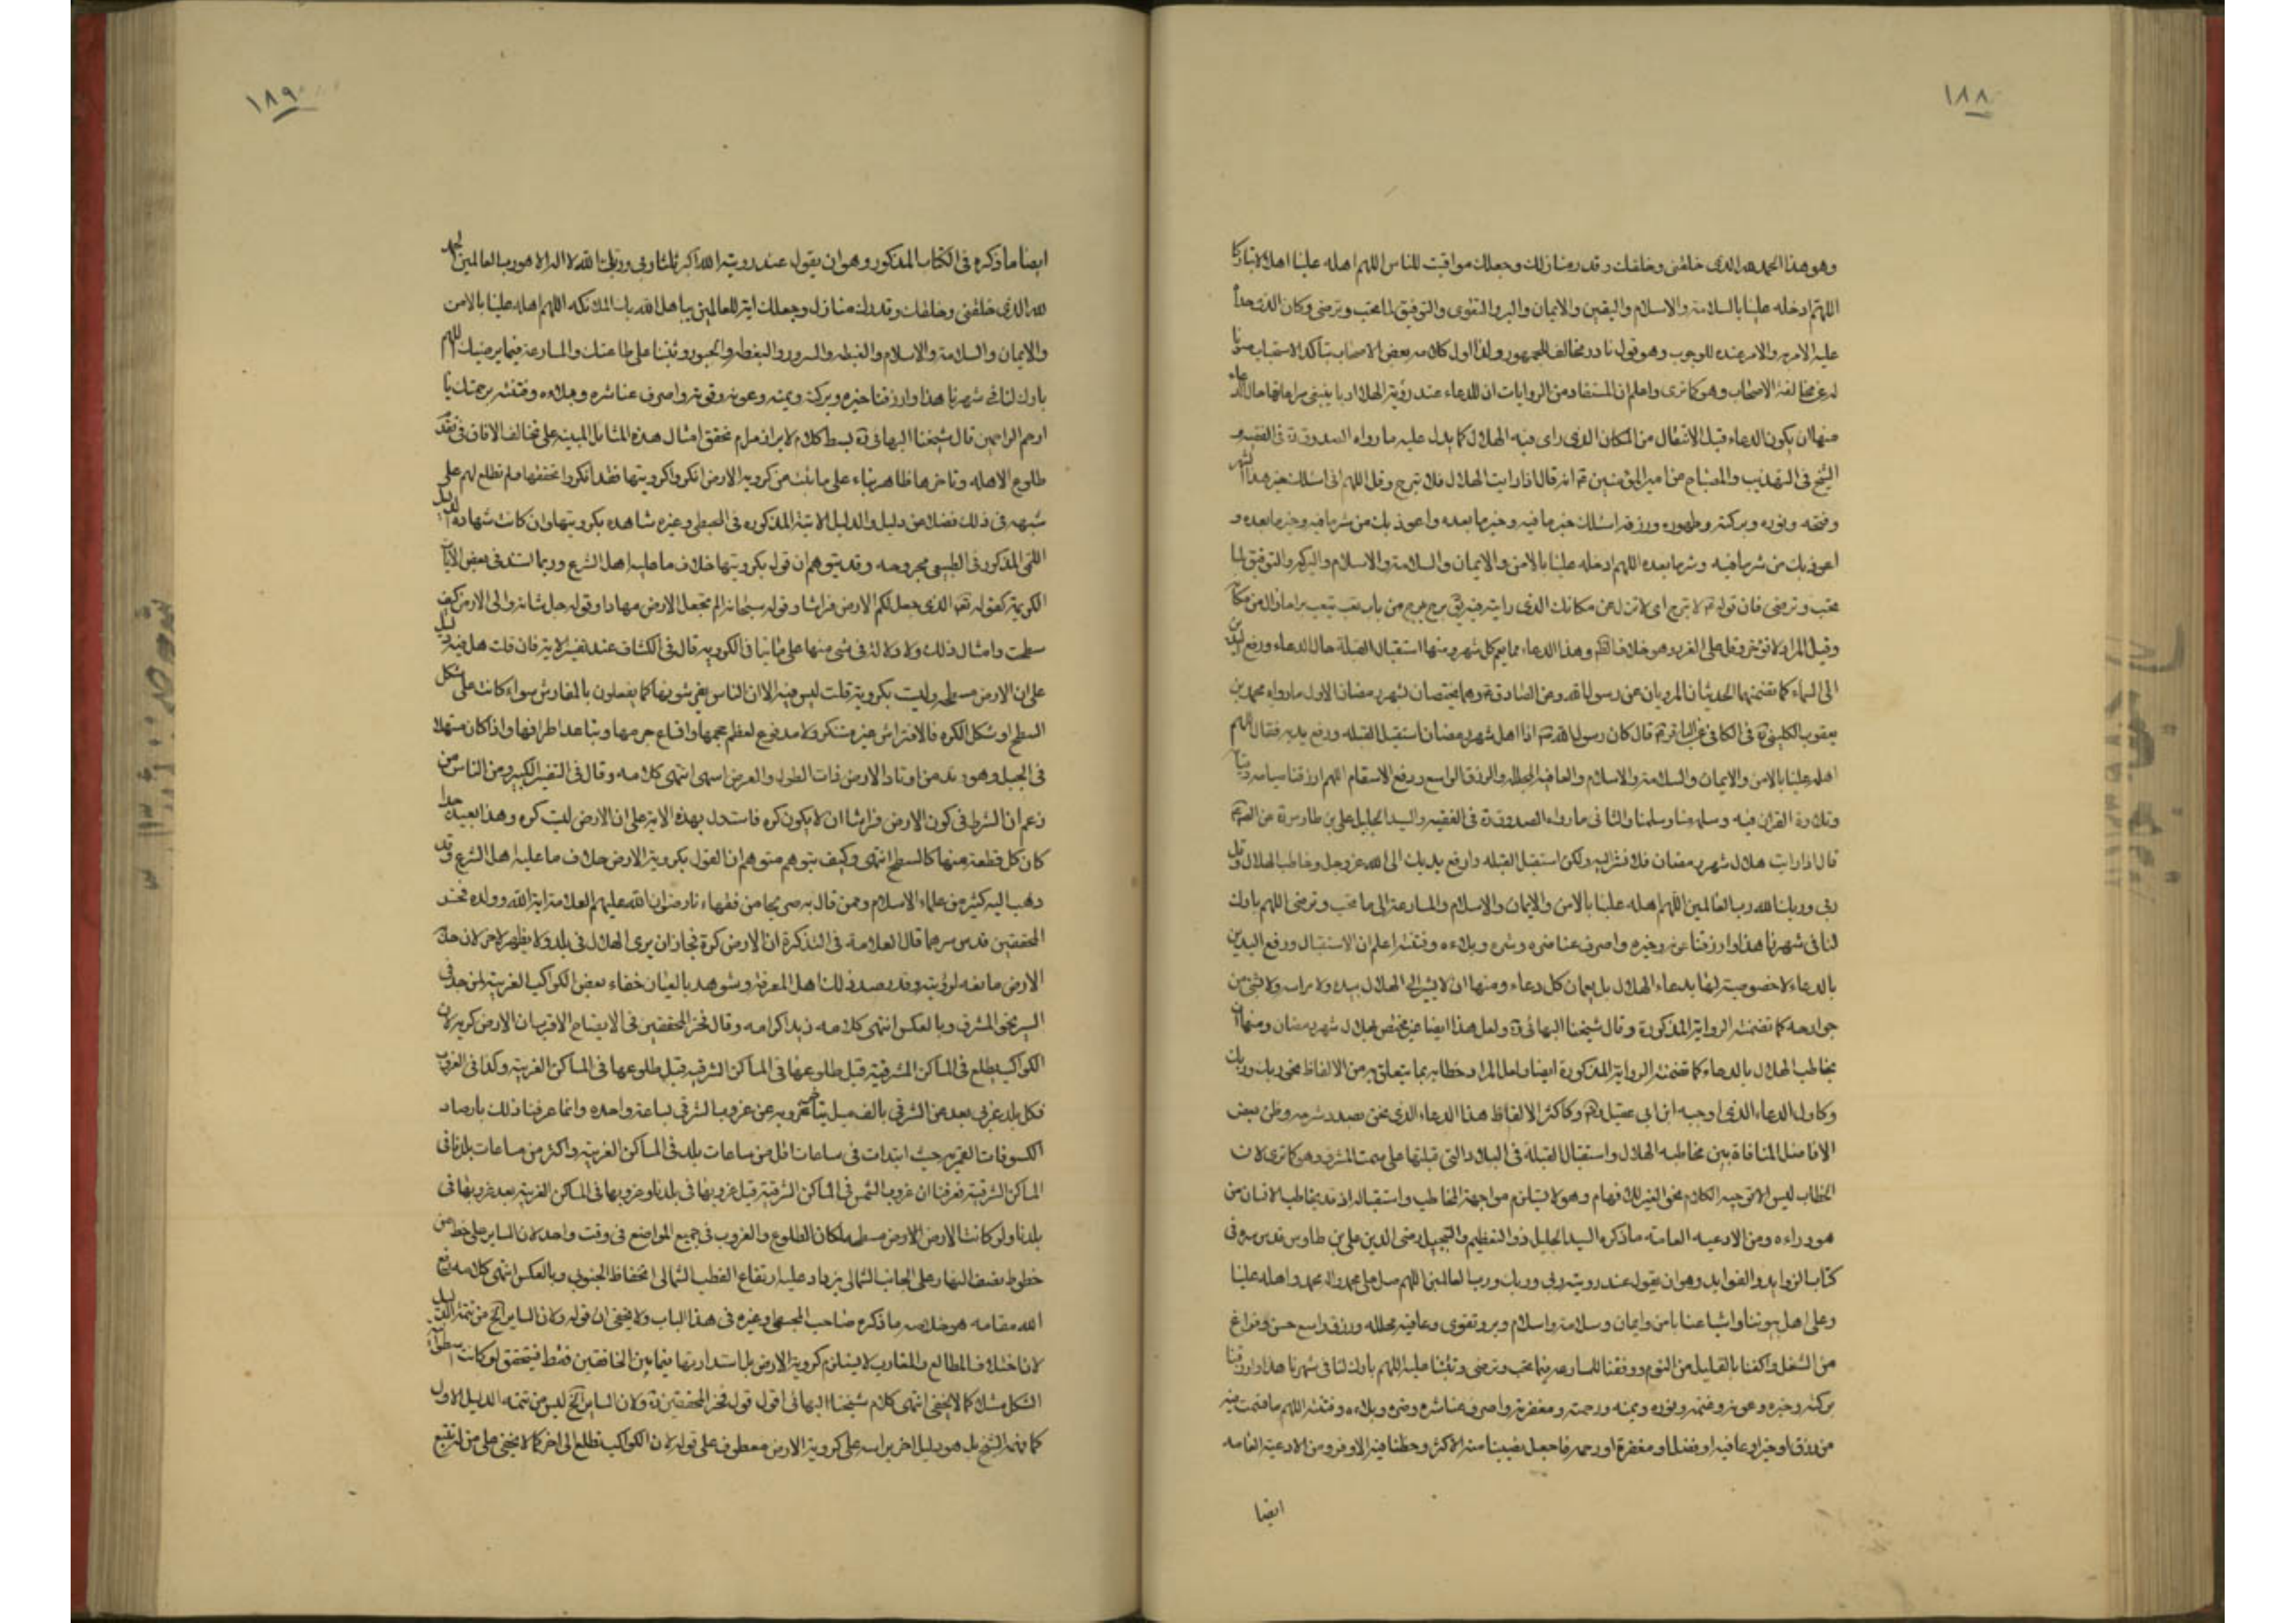 ١٨٨
وهو هذا الحمد لله الذي خلقني وخلقك وقدر منازلك وجعلك مواقيت للناس اللهم اهله علينا اهلالا مباركا
اللهم ادخله علينا بالسلامة والاسلام واليقين والايمان والبر والتقوى والتوفيق لما تحب وترضى وكان الذي حداه
عليه الامر به والامر عنده للوجوب وهو قول نادر مخالف للجمهور ولذا اول كلامه بعض الاصحاب بتأكد الاستحباب صونا
له عن مخالفة الاصحاب وهو كما ترى واعلم ان المستفاد من الروايات ان للدعاء عند رؤية الهلال ادابا ينبغي مراعاتها حال الدعاء
منها ان يكون الدعاء قبل الانتقال من المكان الذي راى فيه الهلال كما يدل عليه ما رواه الصدوق ره في الفقيه و
الشيخ في التهذيب والمصباح عن امير المؤمنين ع انه قال اذا رايت الهلال فلا تبرح وقل اللهم اني اسئلك خير هذا الشهر
وفتحه ونوره وبركته وطهوره ورزقه اسئلك خير ما فيه وخير ما بعده واعوذ بك من شر ما فيه وخير ما بعده و
اعوذ بك من شر ما فيه وشر ما بعده اللهم ادخله علينا بالامن والايمان والسلامة والاسلام والبركة والتوفيق لما
تحب وترضى فان قوله ع لا تبرح اى لا تزل عن مكانك الذي رايته فيه برح يبرح من باب تعب يتعب براحا زال من مكانه
وقيل المراد لا تؤخر وهو خلاف الظاهر وهذا الدعاء مما يعم كل شهر ومنها استقبال القبلة حال الدعاء ورفع اليدين
الى السماء كما تضمنهما الحديثان المرويان عن رسول الله وعن الصادق ع وهما يختصان لشهر رمضان الاول ما رواه محمد بن
يعقوب الكليني ره في الكافي عن الباقر ع قال كان رسول الله ص اذا اهل شهر رمضان استقبل القبله ورفع يديه فقال اللهم
اهله علينا بالامن والايمان والسلامة والاسلام والعافية المجللة والرزق الواسع ودفع الاسقام اللهم ارزقنا صيامه وقيامه
وتلاوة القران فيه وسلمه لنا وسلمنا والثاني ما رواه الصدوق ره في الفقيه والسيد الجليل علي بن طاوس ره عن الصادق ع
قال اذا رايت هلال شهر رمضان فلا تشر اليه ولكن استقبل القبله وارفع يديك الى الله عز وجل وخاطب الهلال وقل
ربي وربك الله رب العالمين اللهم اهله علينا بالامن والايمان والاسلام والمسارعة الى ما تحب وترضى اللهم بارك
لنا في شهرنا هذا وارزقنا عونه وخيره واصرف عنا ضره وشره وبلاءه وفتنته اعلم ان الاستقبال ورفع اليدين
بالدعاء لا خصوصية لهما بدعاء الهلال بل يعمان كل دعاء ومنها ان لا يشير الى الهلال بيده ولا براسه ولا بشئ من
جوارحه كما تضمنته الرواية المذكورة وقال شيخنا البهائي ره ولعل هذا ايضا غير مختص بهلال شهر رمضان ومنها ان
يخاطب الهلال بالدعاء كما تضمنته الرواية المذكورة ايضا ولعل المراد خطابه بما يتعلق به من الالفاظ نحو ربي وربك
وكاول الدعاء الذي اوجبه ابن ابي عقيل وكاكثر الالفاظ هذا الدعاء الذي نحن بصدد شرحه وظن بعض
الافاضل المنافاة بين مخاطبه الهلال واستقبال القبلة في البلاد التي قبلتها على سمت المشرق وهو كما ترى لان
الخطاب ليس الا توجيه الكلام نحو الغير للافهام وهو لا يستلزم مواجهة المخاطب واستقباله اذ قد يخاطب الانسان من
هو وراءه ومن الادعيه العامه ما ذكره السيد الجليل ذو التعظيم والتبجيل رضى الدين علي بن طاوس قدس سره في
كتاب الزوايد والفوايد وهو ان يقول عند رويته ربي وربك ورب العالمين اللهم صل على محمد وال محمد واهله علينا
وعلى اهل بيوتنا واشياعنا بامن وايمان وسلامة واسلام وبر وتقوى وعافيه مجلله ورزق واسع حسن وفراغ
من الشغل واكفنا بالقليل من النوم ووفقنا للمسارعة فيما تحب وترضى وثبتنا عليه اللهم بارك لنا في شهرنا هذا وارزقنا
بركته وخيره وعونه وغنمه ونوره ويمنه ورحمته ومغفرته واصرف عنا شره وضره وبلاءه وفتنته اللهم ما قسمت فيه
من رزق او خير او عافيه او فضل او مغفرة او رحمه فاجعل نصيبنا منه الاكثر وحظنا فيه الاوفر ومن الادعية العامه
ايضا
١٨٩
ايضا ما ذكره في الكتاب المذكور وهو ان يقول عند رويته الله اكبر ثلثا ربي وربك الله لا اله الا هو رب العالمين الحمد
لله الذي خلقني وخلقك وقدرك منازل وجعلك اية للعالمين يباهي الله بك الملائكه اللهم اهله علينا بالامن
والايمان والسلامة والاسلام والغبطه والسرور والبهجة والحبور وثبتنا على طاعتك والمسارعة فيما يرضيك اللهم
بارك لنا في شهرنا هذا وارزقنا خيره وبركته ويمنه وعونه وقوته واصرف عنا شره وبلاءه وفتنته برحمتك يا
ارحم الراحمين قال شيخنا البهائي ره بسط كلام لابراز مرام تحقق امثال هذه المسائل المبنية على تخالف الافاق في تقدم
طلوع الاهله وتاخرها ظاهر بناء على ما ثبت من كروية الارض والذين انكروا كرويتها فقد انكروا تحققها ولم نطلع لهم على
شبهه في ذلك فضلا عن دليل والدلايل الانية المذكوره في المجسطي وغيره شاهده بكرويتها وان كانت شهادة الدليل
اللمي المذكور في الطبيعي مجروحه وقد يتوهم ان قول بكرويتها خلاف ما عليه اهل الشرع وربما استند في بعض الايات
الكريمة كقوله تعالى الذي جعل لكم الارض فراشا وقوله سبحانه الم نجعل الارض مهادا وقوله جل شانه والى الارض كيف
سطحت وامثال ذلك ولا دلالة في شئ منها على ما ينافي الكروية قال في الكشاف عند تفسير الاية فان قلت هل فيه دليل
على ان الارض مسطحة وليست بكروية قلت ليس فيه الا ان الناس يفترشونها كما يفعلون بالمفارش سواء كانت على شكل
السطح او شكل الكره فالافتراش غير مستنكر ولا مدفوع لعظم حجمها واتساع جرمها وتباعد اطرافها واذا كان متسهلا
في الجبل وهو وتد من اوتاد الارض فذات الطول والعرض اسهل انتهى كلامه وقال في التفسير الكبير ومن الناس من
زعم ان الشرط في كون الارض فراشا ان لا يكون كره فاستدل بهذه الاية على ان الارض ليست كره وهذا بعيد جدا
كان كل قطعة منها كالسطح انتهى وكيف يتوهم متوهم ان القول بكروية الارض خلاف ما عليه اهل الشرع وقد
ذهب اليه كثير من علماء الاسلام وممن قال به صريحا من فقهاءنا رضوان الله عليهم العلامة اية الله وولده فخر
المحققين قدس سرهما قال العلامة في التذكرة ان الارض كرة فجاز ان يرى الهلال في بلد ولا يظهر لاخر لان حدبة
الارض مانعه لرؤيته وقد رصد ذلك اهل المعرفة وشوهد بالعيان خفاء بعض الكواكب الغربية لمن جد في
السير نحو المشرق وبالعكس انتهى كلامه زيد اكرامه وقال فخر المحققين في الايضاح الاقرب ان الارض كرية لان
الكواكب يطلع في المساكن المشرقية قبل طلوعها في المساكن الغربية وكذا في الغروب
فكل بلد غربي بعد عن الشرقي بالف ميل يتأخر غروبه عن غروب الشرقي لساعة واحده وانما عرفنا ذلك بارصاد
الكسوفات القمرية حيث ابتدات في ساعات اقل من ساعات بلدنا في المساكن الغربية واكثر من ساعات بلدنا في
المساكن الشرقية فعرفنا ان غروب الشمس في المساكن الشرقية قبل غروبها في بلدنا وغروبها في المساكن الغربية بعد غروبها في
بلدنا ولو كانت الارض مسطحه لكان الطلوع والغروب في جميع المواضع في وقت واحد لان السائر على خط من
خطوط نصف النهار على الجانب الشمالي يزداد عليه ارتفاع القطب الشمالي انخفاظ الجنوبي وبالعكس انتهى كلامه رفع
الله مقامه هو خلاصه ما ذكره صاحب المجسطي وغيره في هذا الباب ولا يخفى ان قوله ولان السائر الخ من تتمة الدليل
لان اختلاف المطالع والمغارب لا يستلزم كروية الارض بل استدارتها فيما بين الخافقين فقط فيتحقق لو كانت اسطوانية
الشكل مثلا كما لا يخفى انتهى كلام شيخنا البهائي اقول قول فخر المحققين ره ولان السائر الخ ليس من تتمه الدليل الاول
كما فهمه الشيخ بل هو دليل اخر براسه على كروية الارض معطوف على قوله لان الكواكب تطلع الى اخره كما لا يخفى على من له تتبع